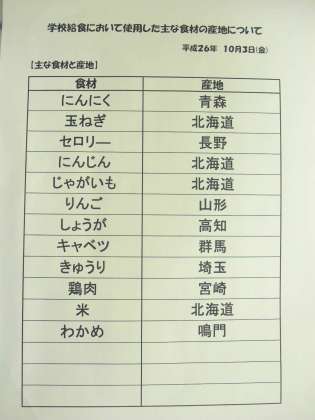 学校給食において使用した主な食材の産地について
平成26年 10月3日(金)
【主な食材と産地】
食材 産地
にんにく 青森
玉ねぎ 北海道
セロリー 長野
にんじん 北海道
じゃがいも 北海道
りんご 山形
しょうが 高知
キャベツ 群馬
きゅうり 埼玉
鶏肉 宮崎
米 北海道
わかめ 鳴門